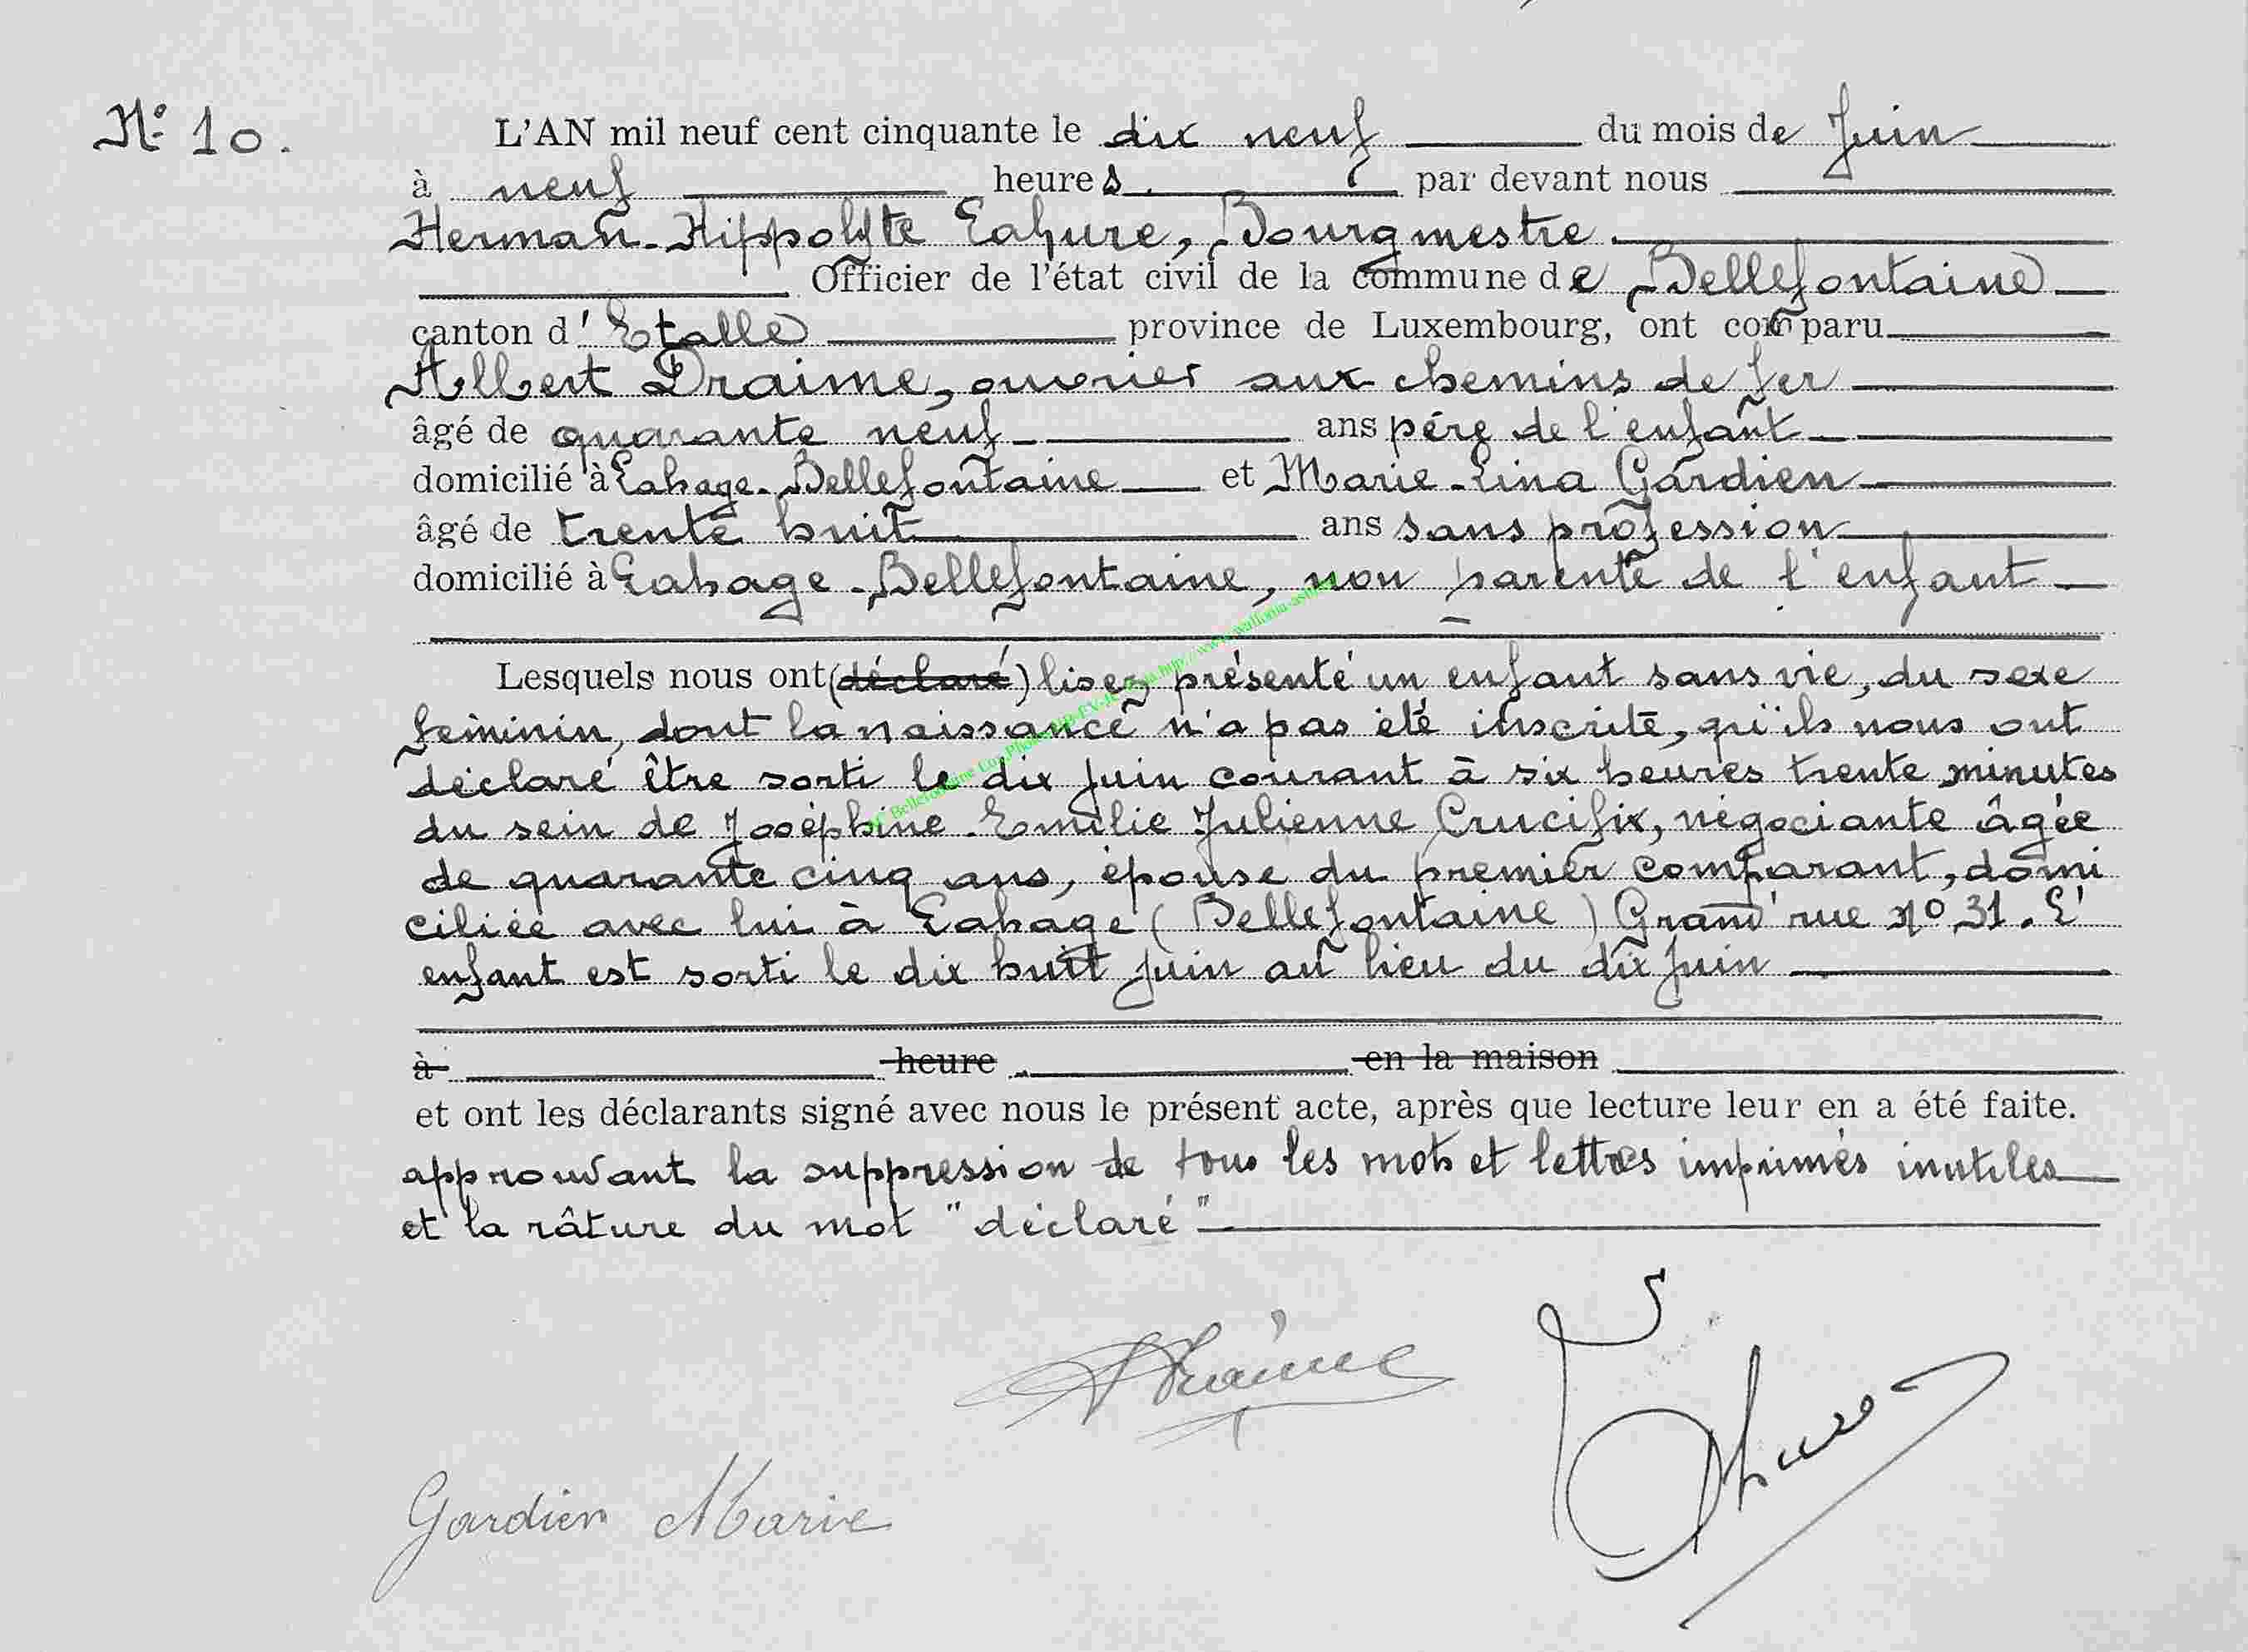 N° 10.
L'AN mil neuf cent cinquante le dix neuf du mois de Juin
à neuf heures. par devant nous
Herman-Hippolyte Lahure, Bourgmestre.
Officier de l'état civil de la commune de Bellefontaine
canton d'Etalle province de Luxembourg, ont comparu
Albert Draime, ouvrier aux chemins de fer
âgé de quarante neuf ans père de l'enfant
domicilié à Lahage-Bellefontaine et Marie-Lina Gardien
âgé de trente huit ans sans profession
domicilié à Lahage-Bellefontaine, non parente de l'enfant
Lesquels nous ont (déclaré) lisez présenté un enfant sans vie, du sexe
féminin, dont la naissance n'a pas été inscrite, qu'ils nous ont
déclaré être sorti le dix juin courant à six heures trente minutes
du sein de Joséphine-Emilie Julienne Crucifix, négociante âgée
de quarante cinq ans, épouse du premier comparant, domi
ciliée avec lui à Lahage (Bellefontaine) Grand'rue n° 31. L'
enfant est sorti le dix huit juin au lieu du dix juin
à heure en la maison
et ont les déclarants signé avec nous le présent acte, après que lecture leur en a été faite.
approuvant la suppression de tous les mots et lettres imprimés inutiles
et la râture du mot "déclaré"
Draime
Lahure
Gardien Marie